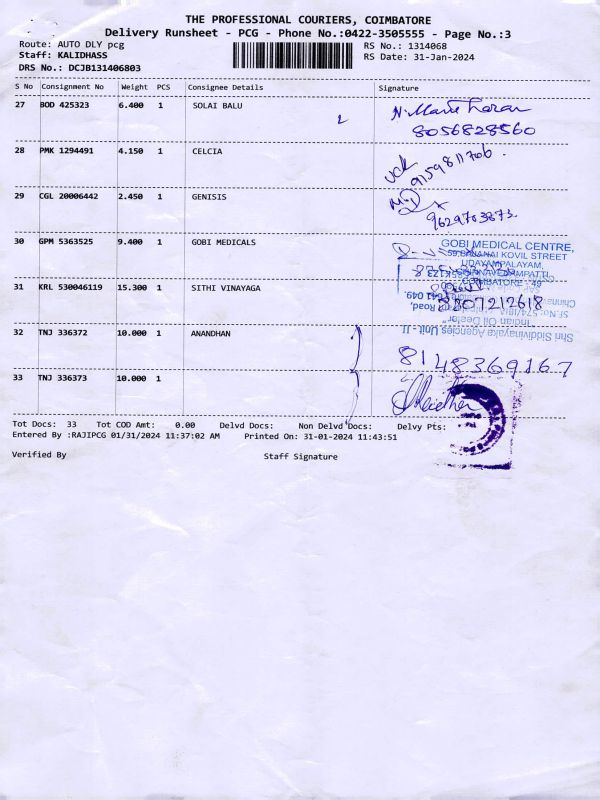 THE PROFESSIONAL COURIERS, COIMBATORE
Delivery Runsheet - PCG - Phone No.:0422-3505555 - Page No.:3
Route: AUTO DLY pcg RS No.: 1314068
Staff: KALIDHASS RS Date: 31-Jan-2024
DRS No.: DCJB131406803
S No Consignment No Weight PCS Consignee Details Signature
27 BOD 425323 6.400 1 SOLAI BALU 2
8056828560
28 PMK 1294491 4.150 1 CELCIA
9159811706
29 CGL 20006442 2.450 1 GENISIS
9629703873
30 GPM 5363525 9.400 1 GOBI MEDICALS
GOBI MEDICAL CENTRE,
UDAYAMPALAYAM,
31 KRL 530046119 15.300 1 SITHI VINAYAGA
8807212618
"Indian Oil Dealer"
Shri Siddivinayaka Agencies Unit - II
32 TNJ 336372 10.000 1 ANANDHAN
8148369167
33 TNJ 336373 10.000 1
Tot Docs: 33 Tot COD Amt: 0.00 Delvd Docs: Non Delvd Docs: Delvy Pts:
Entered By :RAJIPCG 01/31/2024 11:37:02 AM Printed On: 31-01-2024 11:43:51
Verified By Staff Signature